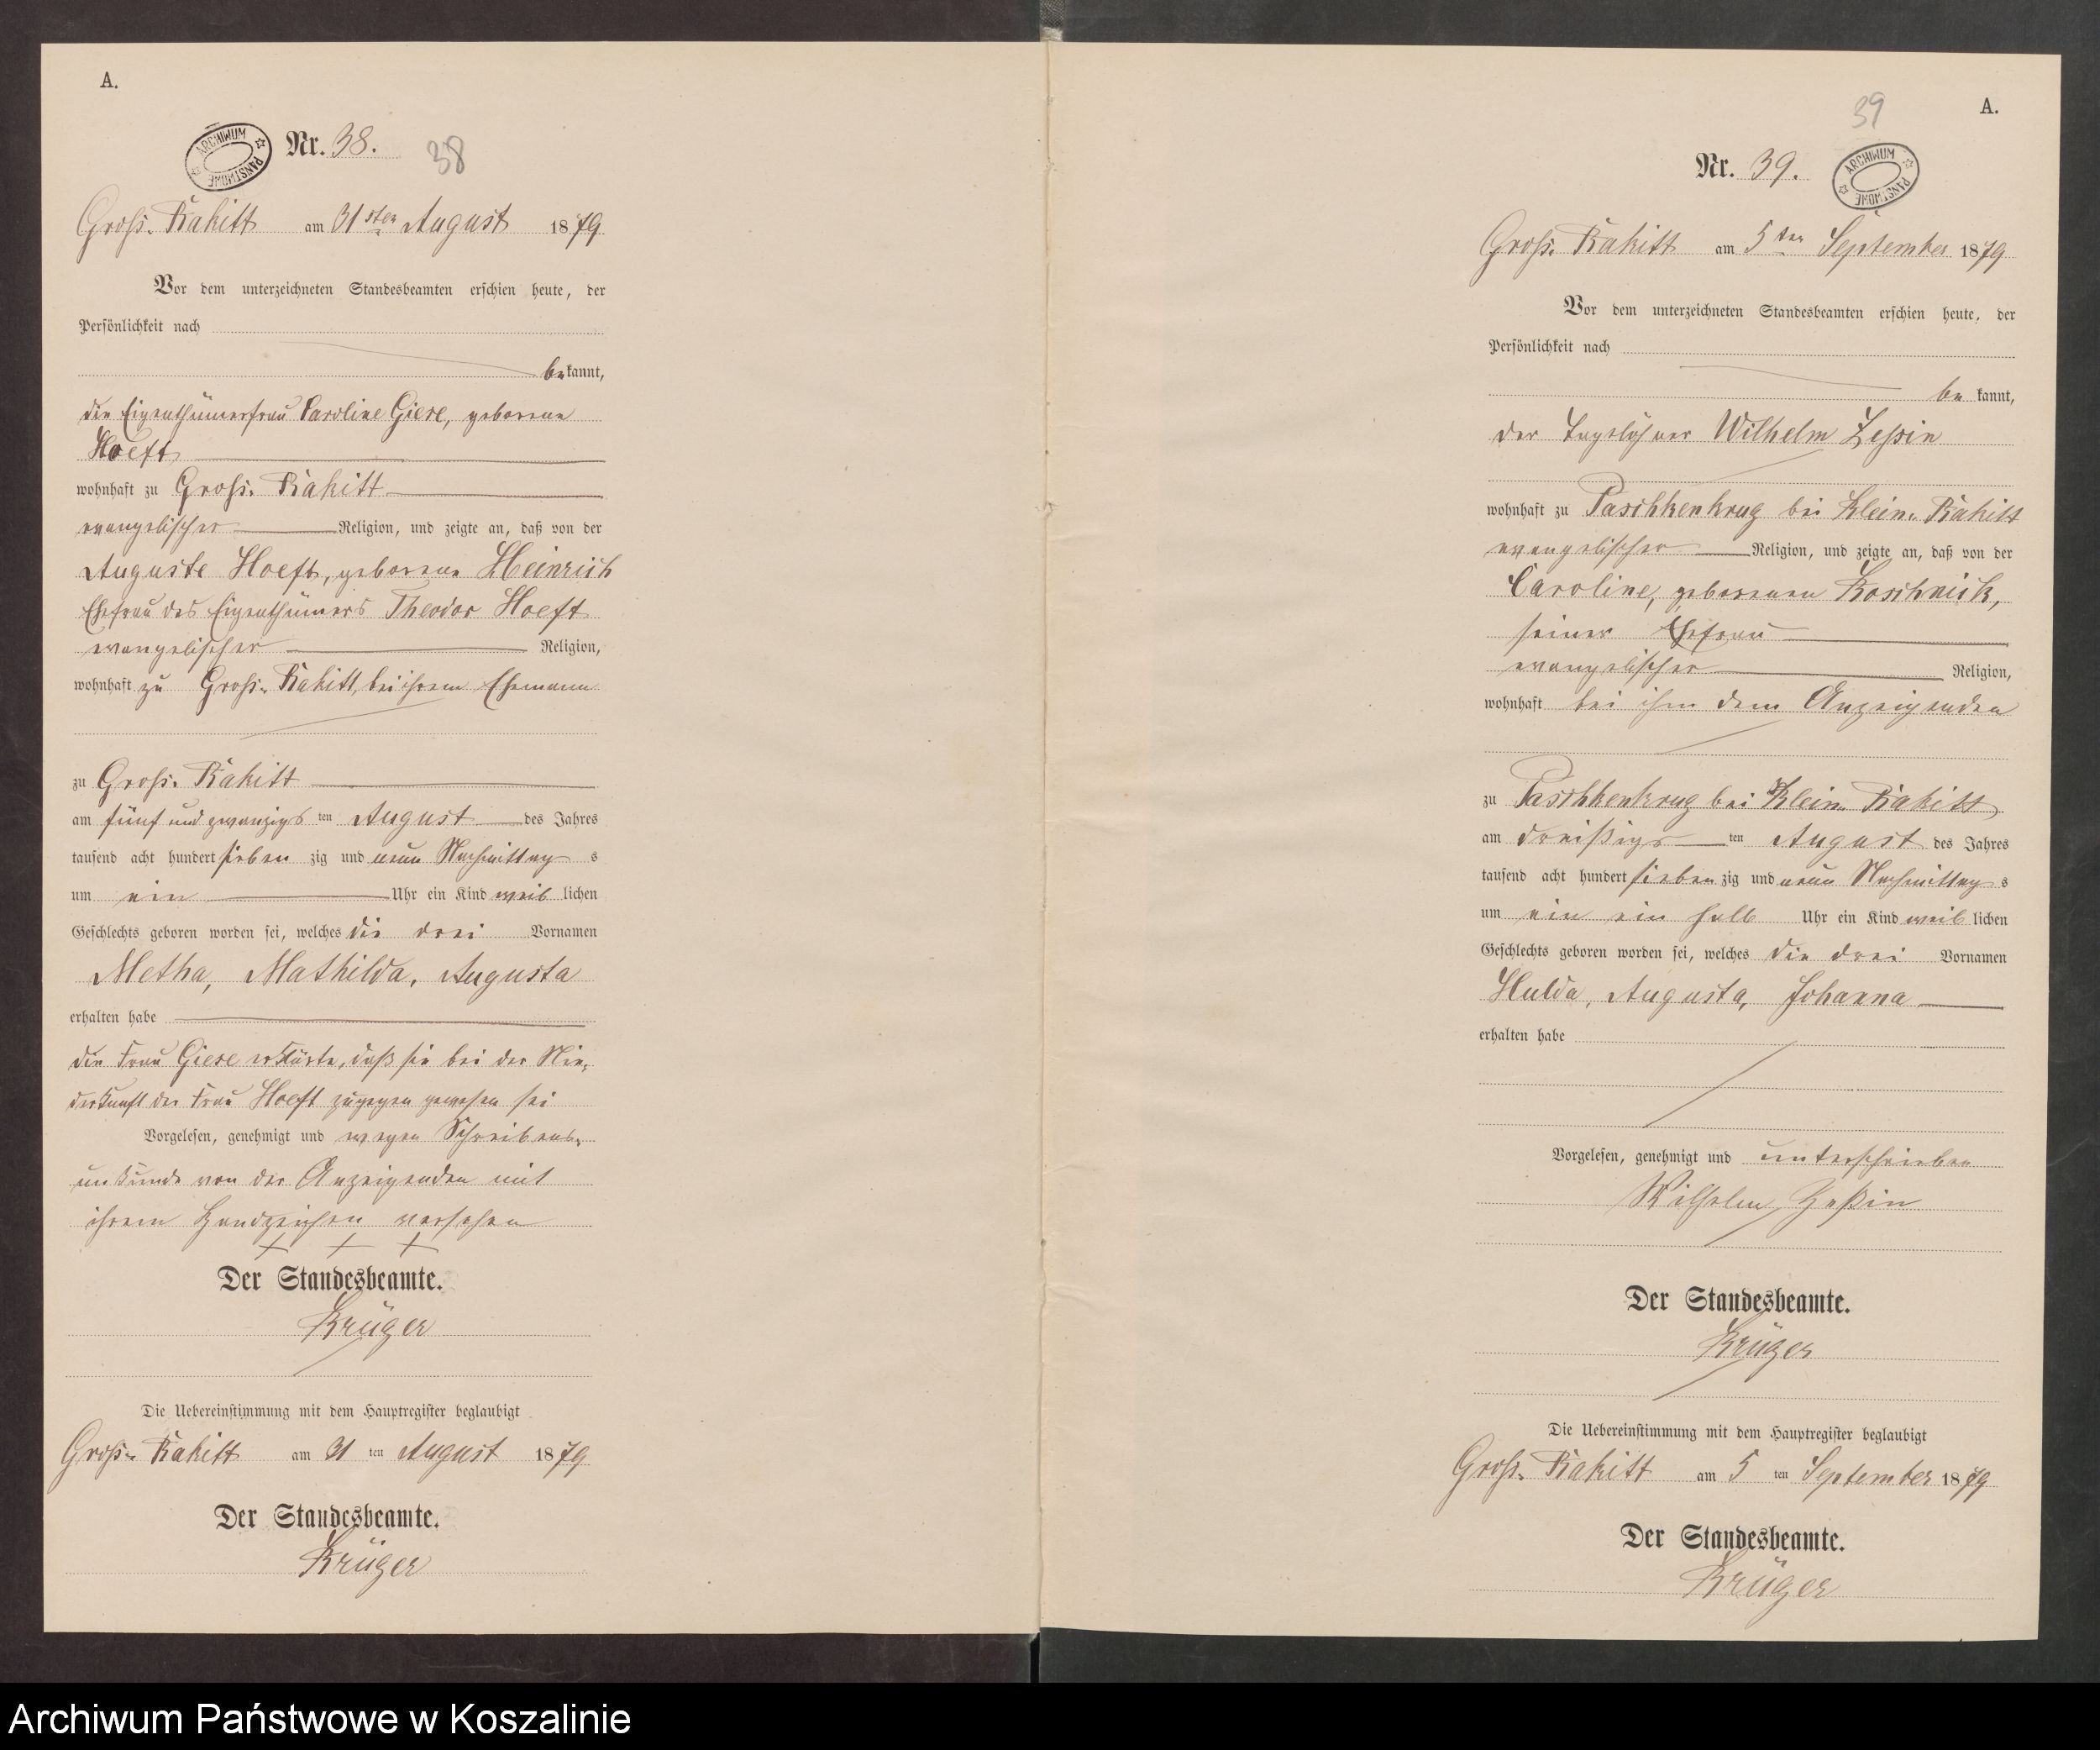 A.
Nr. 38.
38
ARCHIWUM PAŃSTWOWE
Groß-Rakitt am 31sten August 1879
Vor dem unterzeichneten Standesbeamten erschien heute, der
Persönlichkeit nach
bekannt,
die Eigenthümerfrau Caroline Giese, geborene
Hoeft
wohnhaft zu Groß-Rakitt
evangelischer Religion, und zeigte an, daß von der
Auguste Hoeft, geborene Heinrich
Ehefrau des Eigenthümers Theodor Hoeft
evangelischer Religion,
wohnhaft zu Groß-Rakitt, bei ihrem Ehemann
zu Groß-Rakitt
am fünf und zwanzigsten August des Jahres
tausend acht hundert siebenzig und neun Nachmittags
um ein Uhr ein Kind weiblichen
Geschlechts geboren worden sei, welches die drei Vornamen
Metha, Mathilda, Augusta
erhalten habe
die Frau Giese erklärte, daß sie bei der Nie-
derkunft der Frau Hoeft zugegen gewesen sei
Vorgelesen, genehmigt und wegen Schreibens-
unkunde von der Anzeigenden mit
ihrem Handzeichen versehen
+ + +
Der Standesbeamte.
Krüger
Die Uebereinstimmung mit dem Hauptregister beglaubigt
Groß-Rakitt am 31ten August 1879
Der Standesbeamte.
Krüger
39
A.
Nr. 39.
ARCHIWUM PAŃSTWOWE
Groß-Rakitt am 5ten September 1879
Vor dem unterzeichneten Standesbeamten erschien heute, der
Persönlichkeit nach
bekannt,
der Tagelöhner Wilhelm Zessin
wohnhaft zu Paschkenkrug bei Klein-Rakitt
evangelischer Religion, und zeigte an, daß von der
Caroline, geborenen Koschnick,
seiner Ehefrau
evangelischer Religion,
wohnhaft bei ihm dem Anzeigenden
zu Paschkenkrug bei Klein-Rakitt
am dreißigsten August des Jahres
tausend acht hundert siebenzig und neun Nachmittags
um ein ein halb Uhr ein Kind weiblichen
Geschlechts geboren worden sei, welches die drei Vornamen
Hulda, Augusta, Johanna
erhalten habe
Vorgelesen, genehmigt und unterschrieben
Wilhelm Zeßin
Der Standesbeamte.
Krüger
Die Uebereinstimmung mit dem Hauptregister beglaubigt
Groß-Rakitt am 5ten September 1879
Der Standesbeamte.
Krüger
Archiwum Państwowe w Koszalinie